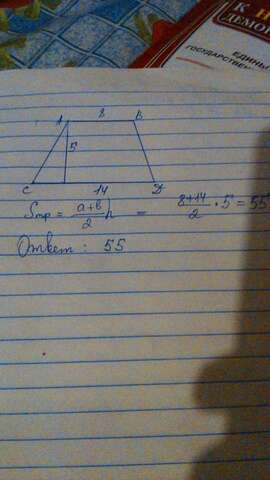 К
ДЕМО
ЕДИНЫ
ГОСУДАРСТВЕН
A 8 B
5
C 14 D
Sтр = a+b/2 h = 8+14/2 · 5 = 55
Ответ: 55